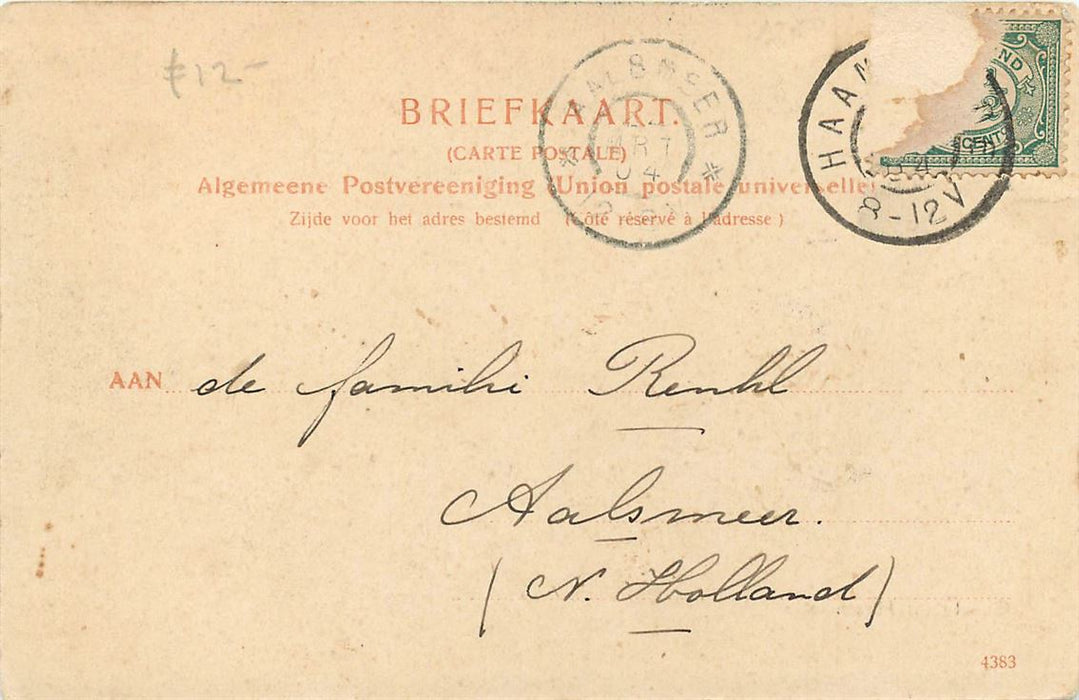 ƒ12-
BRIEFKAART.
(CARTE POSTALE)
Algemeene Postvereeniging (Union postale universelle)
Zijde voor het adres bestemd (Côté réservé à l'adresse)
AALSMEER
04
HAA
8-12V
CENT
AAN de familie
Aalsmeer.
(N. Holland)
4383